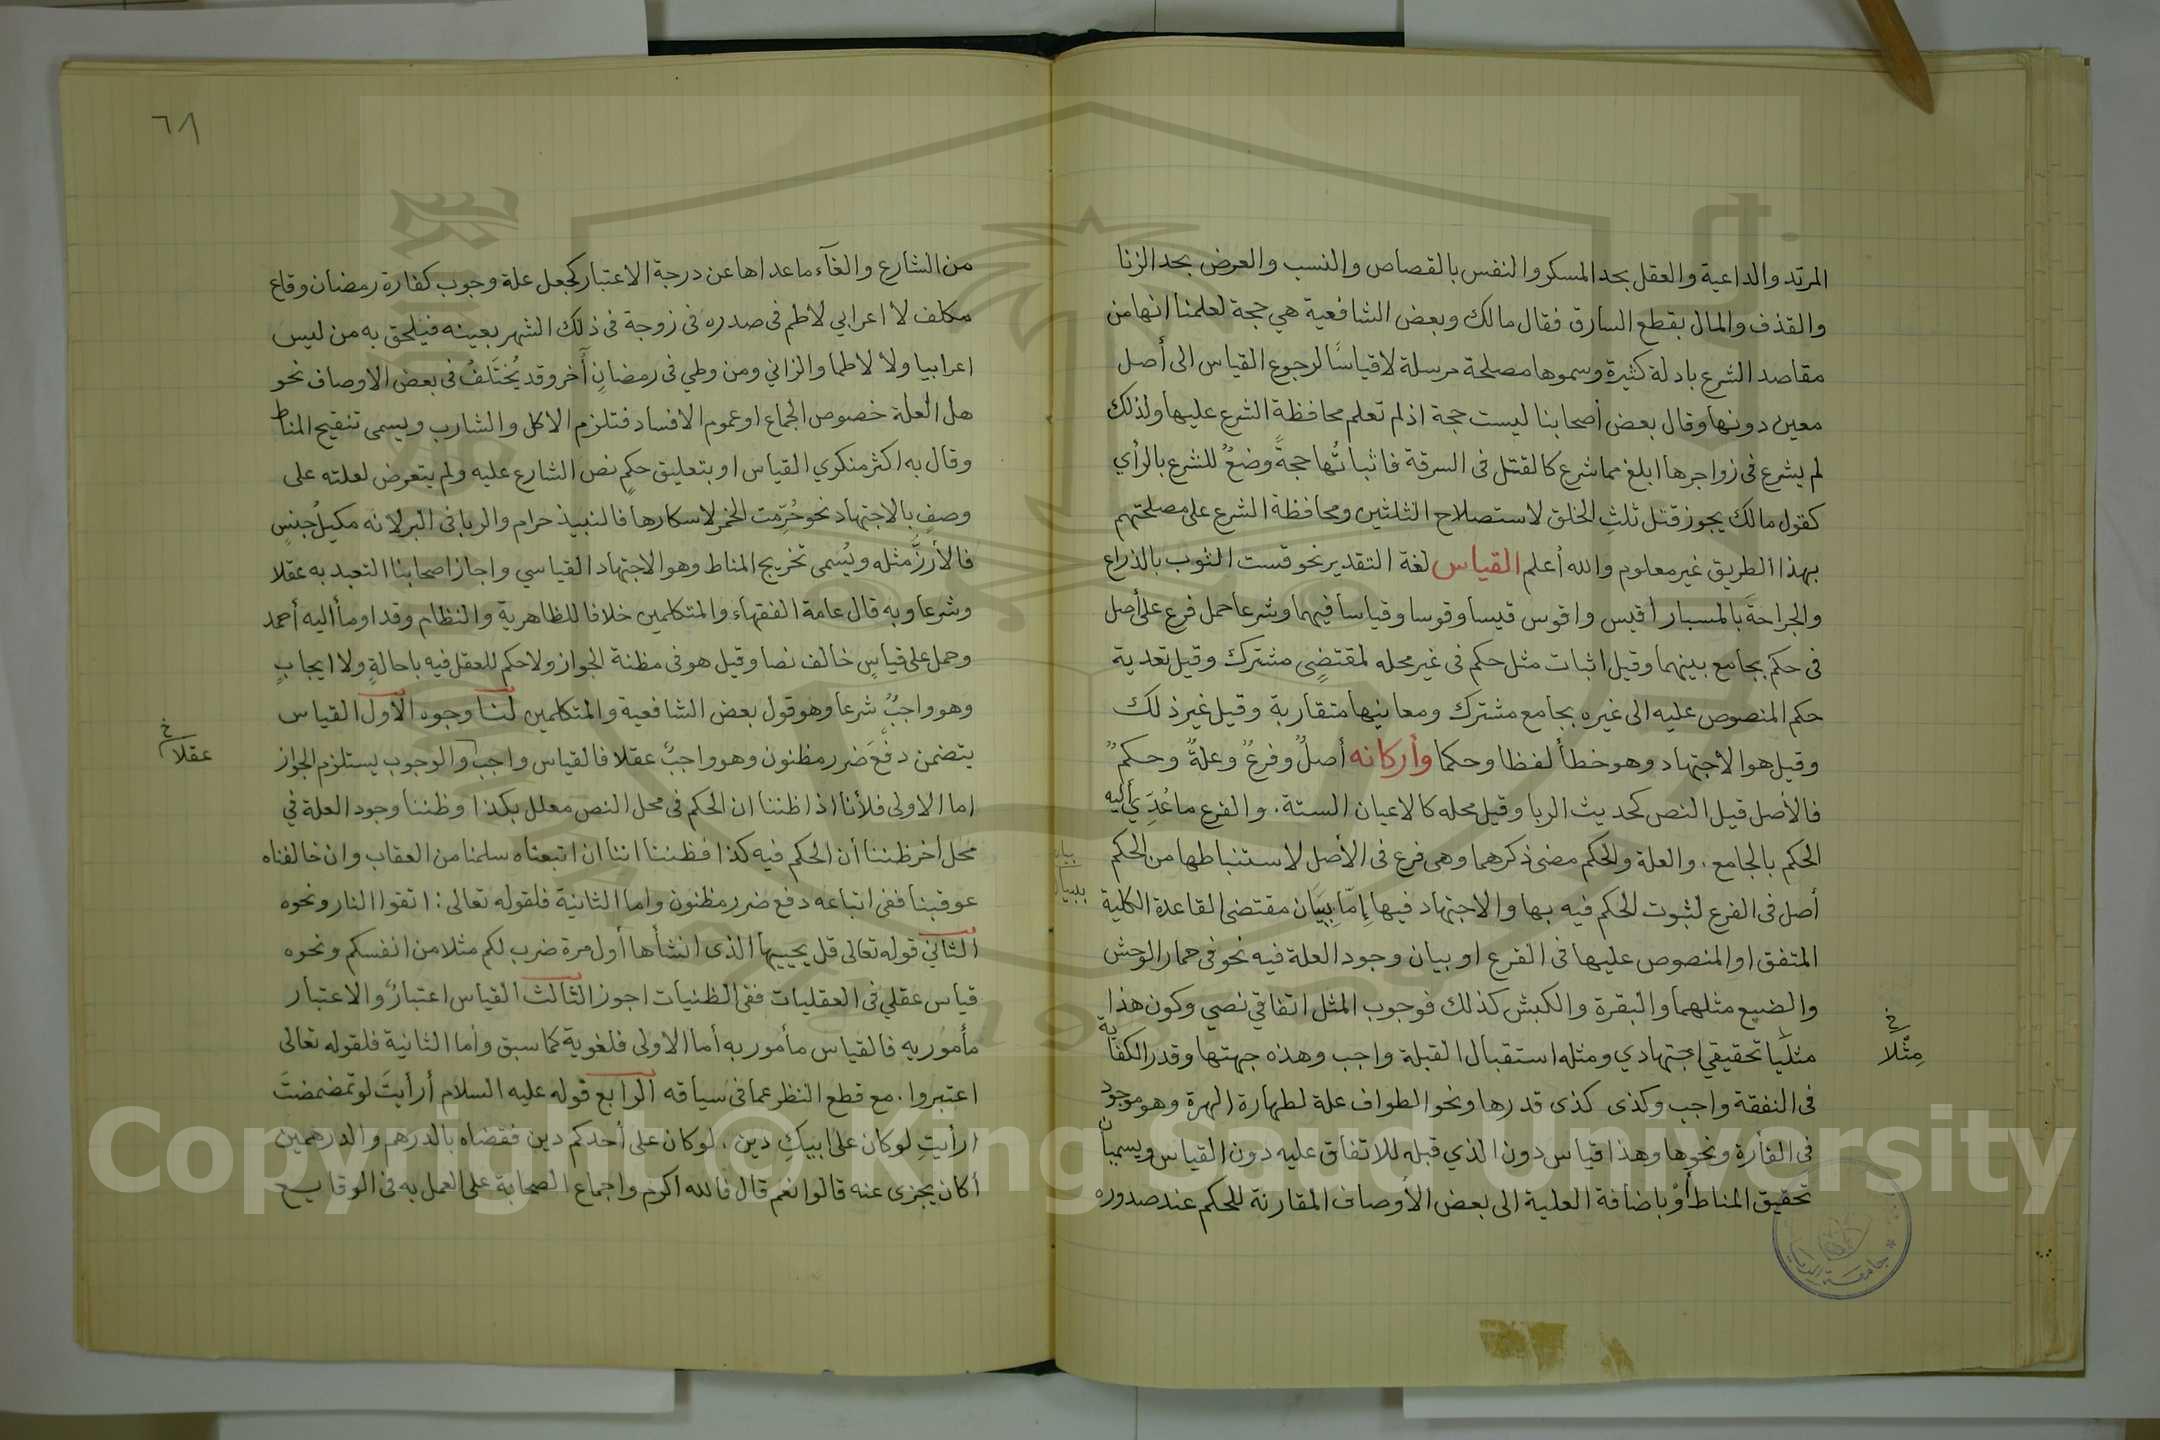 المرتد والداعية والعقل بحد المسكر والنفس بالقصاص والنسب والعرض بحد الزنا
والقذف والمال بقطع السارق فقال مالك وبعض الشافعية هي حجة لعلمنا انها من
مقاصد الشرع بادلة كثيرة وسموها مصلحة مرسلة لا قياسًا لرجوع القياس الى أصل
معين دونها وقال بعض أصحابنا ليست حجة اذ لم تعلم محافظة الشرع عليها ولذلك
لم يشرع فى زواجرها ابلغ مما شرع كالقتل فى السرقة فاثباتُها حجةً وضعٌ للشرع بالرأي
كقول مالك يجوز قتل ثلثِ الخلق لاستصلاح الثلثين ومحافظة الشرع على مصلحتهم
بهذا الطريق غير معلوم والله أعلم القياس لغة التقدير نحو قست الثوب بالذراع
والجراحةَ بالمسبار أقيس واقوس قيسا وقوسا وقياسا فيهما وشرعا حمل فرع على أصل
فى حكم بجامع بينهما وقيل اثبات مثل حكم فى غير محله لمقتضٍ مشترك وقيل تعدية
حكم المنصوص عليه الى غيره بجامع مشترك ومعانيها متقاربة وقيل غير ذلك
وقيل هو الاجتهاد وهو خطأ لفظا وحكما وأركانه أصلٌ وفرعٌ وعلةٌ وحكمٌ
فالأصل قيل النص كحديث الربا وقيل محله كالاعيان الستة. والفرع ما عُدِّيَ اليه
الحكم بالجامع. والعلة والحكم مضى ذكرهما وهى فرع فى الأصل لاستنباطها من الحكم
أصل فى الفرع لثبوت الحكم فيه بها والاجتهاد فيها إمّا بِبَيَان مقتضى القاعدة الكلية
المتفق او المنصوص عليها فى الفرع او بيان وجود العلة فيه نحو فى حمار الوحش
والضبع مثلهما والبقرة والكبش كذلك فوجوب المثل اتفاقي نصي وكون هذا
مثليًا تحقيقي اجتهادي ومثله استقبال القبلة واجب وهذه جهتها وقدر الكفاية
فى النفقة واجب وكذى كذى قدرها ونحو الطواف علة لطهارة الهرة وهو موجود
فى الفأرة ونحوها وهذا قياس دون الذي قبله للاتفاق عليه دون القياس ويسميان
تحقيق المناط أوْ باضافة العلية الى بعض الأوصاف المقارنة للحكم عند صدوره
خ
مِثْلا
بيان
٦٨
من الشارع والغآء ماعداها عن درجة الاعتبار كجعل علة وجوب كفارة رمضان وقاع
مكلف لا اعرابي لاطم فى صدره فى زوجة فى ذلك الشهر بعينه فيلحق به من ليس
اعرابيا ولا لاطما والزاني ومن وطي فى رمضانٍ أخر وقد يُختَلَفُ فى بعض الاوصاف نحو
هل العلة خصوص الجماع او عموم الافساد فتلزم الاكل والشارب ويسمى تنقيح المناط
وقال به اكثر منكري القياس او بتعليق حكمٍ نص الشارع عليه ولم يتعرض لعلته على
وصفٍ بالاجتهاد نحو حُرِّمت الخمر لاسكارها فالنبيذ حرام والربا فى البر لانه مكيلُ جنسٍ
فالأرزّ مثله ويُسمى تخريج المناط وهو الاجتهاد القياسي واجاز اصحابنا التعبد به عقلا
وشرعا وبه قال عامة الفقهاء والمتكلمين خلافا للظاهرية والنظام وقد اومأ اليه أحمد
وحمل على قياسٍ خالف نصا وقيل هو فى مظنة الجواز ولا حكم للعقل فيه باحالةٍ ولا ايجابٍ
وهو واجبٌ شرعا وهو قول بعض الشافعية والمتكلمين لنا وجوه الأول القياس
يتضمن دفعَ ضرر مظنون وهو واجبٌ عقلا فالقياس واجب والوجوب يستلزم الجواز
اما الاولى فلأنا اذا ظننا ان الحكم فى محل النص معلل بكذا وظننا وجود العلة في
محل أخر ظننا أن الحكم فيه كذا فظننا اننا ان اتبعناه سلمنا من العقاب وان خالفناه
عوقبنا ففى اتباعه دفع ضرر مظنون واما الثانية فلقوله تعالى: اتقوا النار ونحوه
الثاني قوله تعالى قل يحييها الذى انشأها أول مرة ضرب لكم مثلا من انفسكم ونحوه
قياس عقلي فى العقليات ففى الظنيات اجوز الثالث القياس اعتبارٌ والاعتبار
مأمور به فالقياس مأمور به أما الاولى فلغوية كما سبق وأما الثانية فلقوله تعالى
اعتبروا. مع قطع النظر عما فى سياقه الرابع قوله عليه السلام أرأيتَ لو تمضمضتَ
ارأيتِ لو كان على ابيكِ دين. لو كان على أحدكم دين فقضاه بالدرهم والدرهمين
أكان يجزى عنه قالوا نعم قال فالله اكرم واجماع الصحابة على العمل به فى الوقايع
خ
عقلا
Copyright © King Saud University